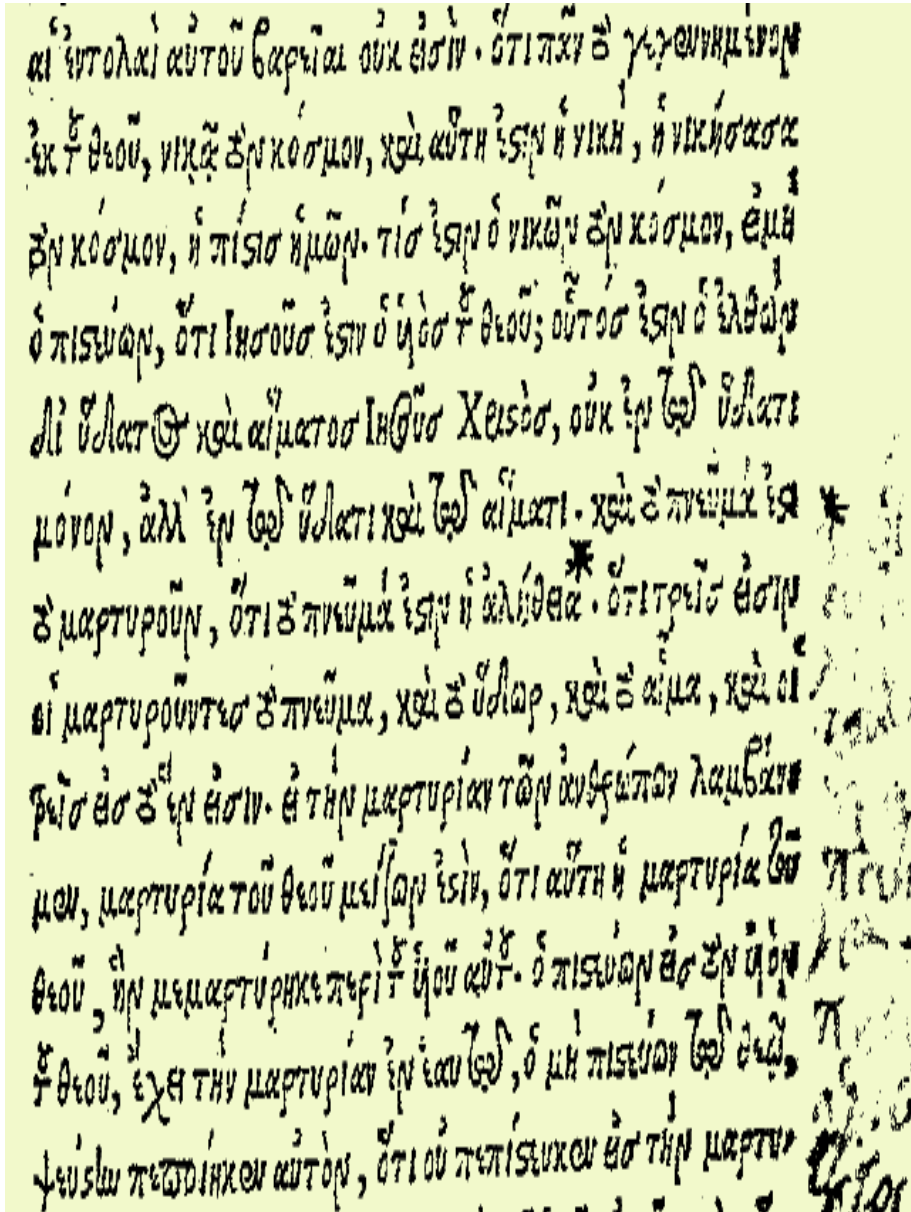 αἱ ἐντολαὶ αὐτοῦ βαρεῖαι οὐκ εἰσίν. ὅτι πᾶν τὸ γεγεννημένον
ἐκ τοῦ θεοῦ, νικᾷ τὸν κόσμον, καὶ αὕτη ἐστὶν ἡ νικὴ, ἡ νικήσασα
τὸν κόσμον, ἡ πίστισ ἡμῶν. τίσ ἐστιν ὁ νικῶν τὸν κόσμον, εἰ μὴ
ὁ πιστεύων, ὅτι Ιησοῦσ ἐστιν ὁ ὑιὸσ τοῦ θεοῦ; οὗτόσ ἐστιν ὁ ἐλθὼν
δι' ὕδατος καὶ αἵματοσ Ιησοῦσ Χριστὸσ, οὐκ ἐν τῷ ὕδατι
μόνον, ἀλλ' ἐν τῷ ὕδατι καὶ τῷ αἵματι. καὶ τὸ πνεῦμά ἐστι
τὸ μαρτυροῦν, ὅτι τὸ πνεῦμά ἐστιν ἡ ἀλήθεια*. ὅτι τρεῖσ εἰσιν
οἱ μαρτυροῦντεσ τὸ πνεῦμα, καὶ τὸ ὕδωρ, καὶ τὸ αἷμα, καὶ οἱ
τρεῖσ εἰσ τὸ ἕν εἰσιν. εἰ τὴν μαρτυρίαν τῶν ἀνθρώπων λαμβάνο
μεν, μαρτυρία τοῦ θεοῦ μείζων ἐστὶν, ὅτι αὕτη ἡ μαρτυρία τοῦ
θεοῦ, ἣν μεμαρτύρηκε περὶ τοῦ ὑιοῦ αὐτοῦ. ὁ πιστεύων εἰσ τὸν ὑιὸν
τοῦ θεοῦ, ἔχει τὴν μαρτυρίαν ἐν ἑαυτῷ, ὁ μὴ πιστεύων τῷ θεῷ,
ψεύστην πεποίηκεν αὐτὸν, ὅτι οὐ πεπίστευκεν εἰσ τὴν μαρτυ-